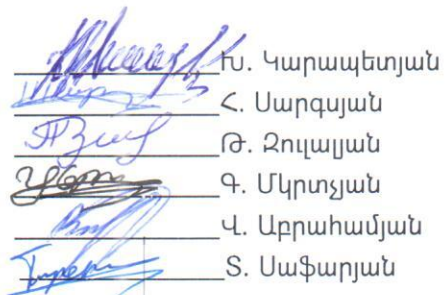 Խ. Կարապետյան
Հ. Սարգսյան
Թ. Զուլալյան
Գ. Մկրտչյան
Վ. Աբրահամյան
Տ. Սաֆարյան